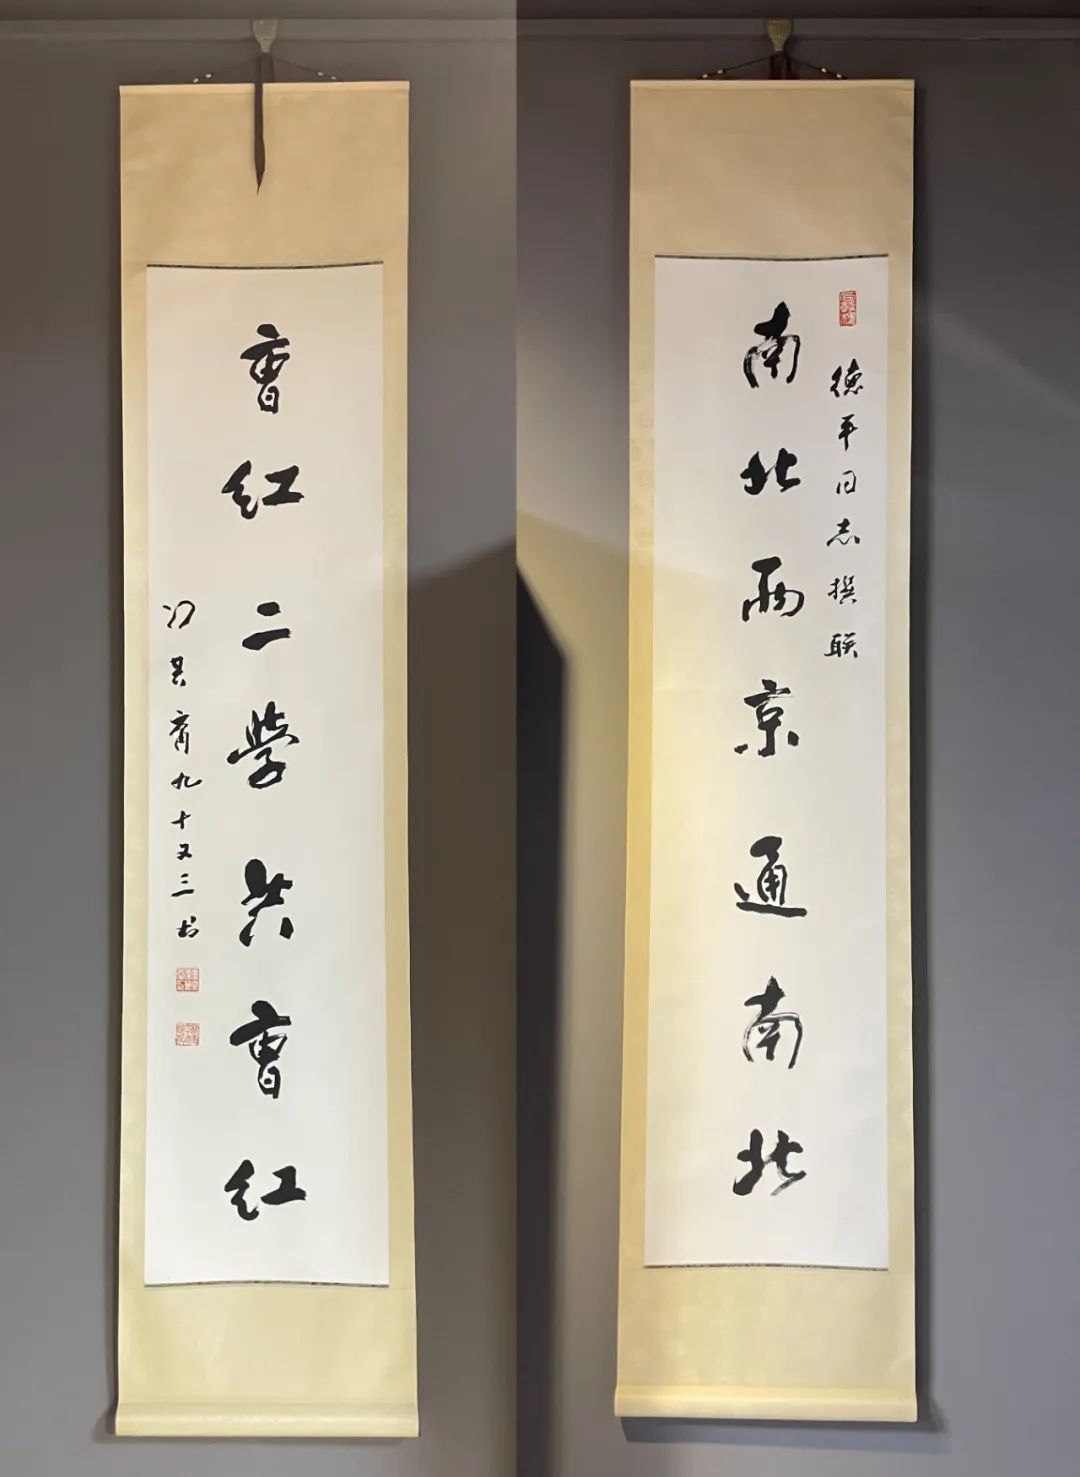 德平同志撰联
南北两京通南北
曹红二學共曹红
冯其庸九十又三书